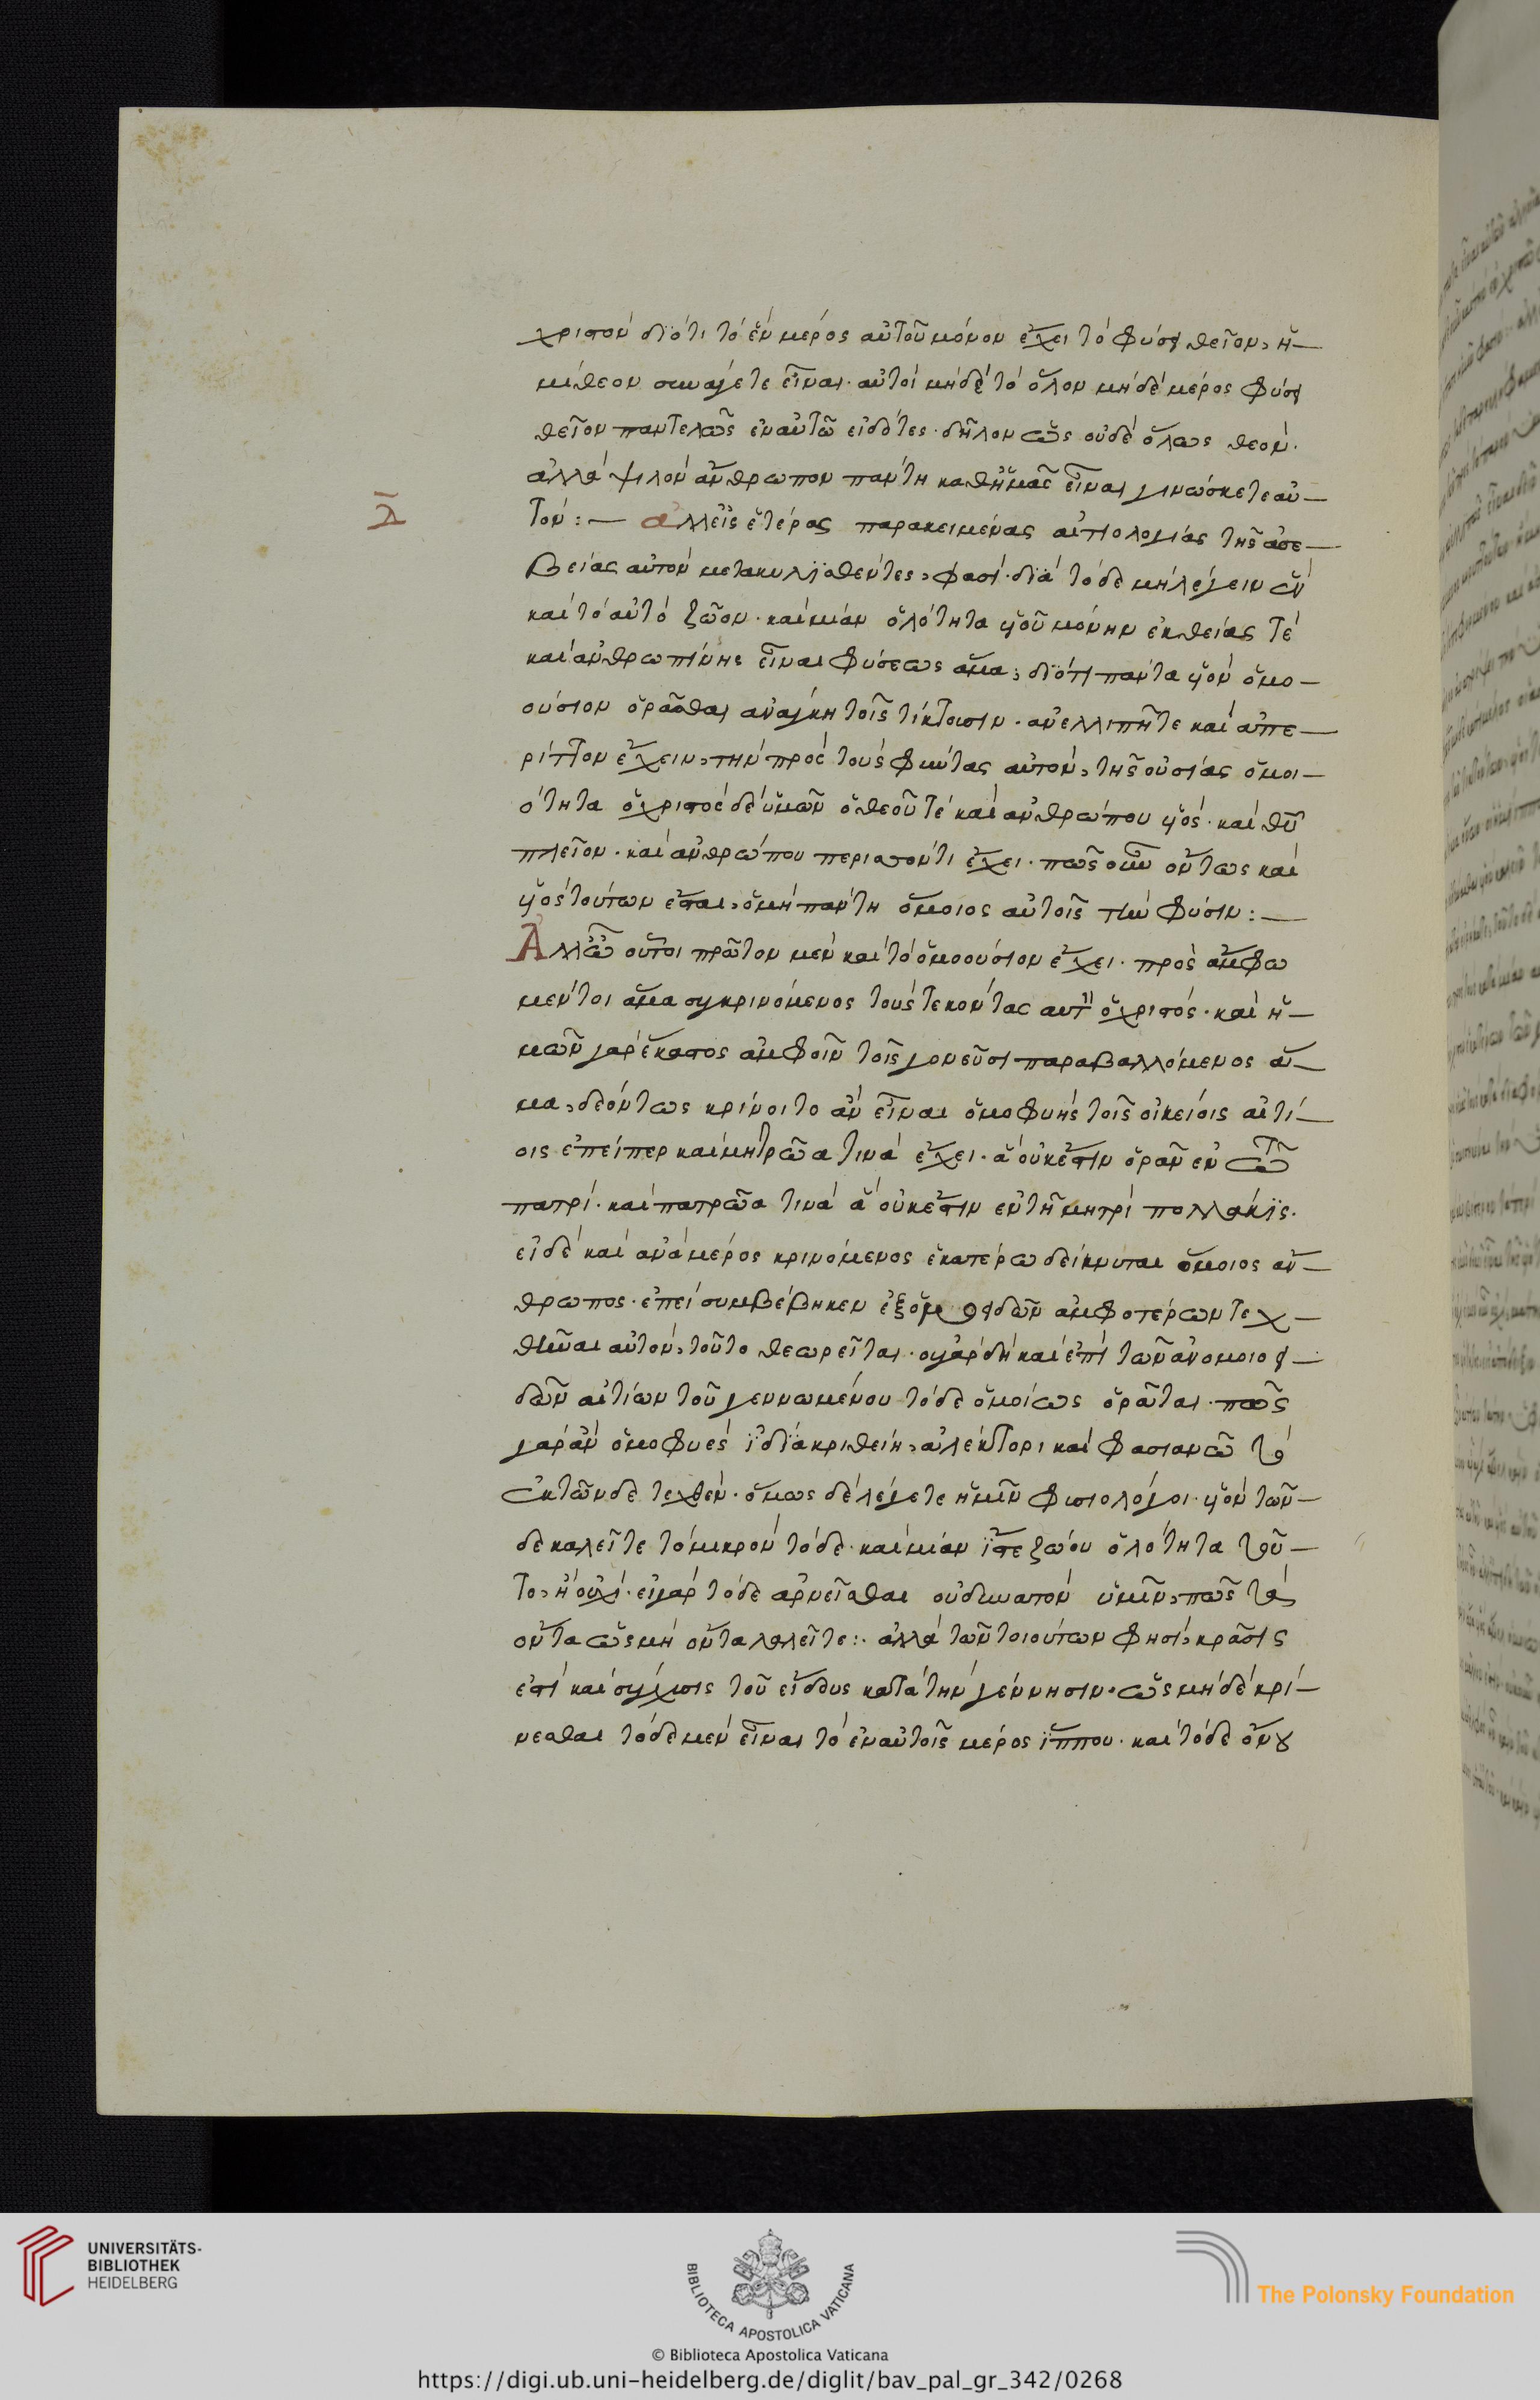 χριστὸν διότι τὸ ἓν μέρος αὐτοῦ μόνον ἔχει τὸ φύσει θεῖον, ἡ—
μίθεον συνάγετε εἶναι· αὐτοὶ μηδὲ τὸ ὅλον μηδὲ μέρος φύσει
θεῖον παντελῶς ἐν αὐτῶ εἰδότες· δῆλον ὡς οὐδὲ ὅλως θεὸν·
ἀλλὰ ψιλὸν ἄνθρωπον πάντη καθ ἡμᾶς εἶναι γινώσκετε αὐ—
λ
τόν:— ἀλλ εἰς ἑτέρας παρακειμένας αἰτιολογίας τῆς ἀσε—
βείας αὐτὸν μετακυλισθέντες, φασὶ· διὰ τόδε μὴ λέγειν ἓν
καὶ τὸ αὐτὸ ζῶον· καὶ μίαν ὁλότητα υἱοῦ μόνην ἐκ θείας τὲ
καὶ ἀνθρωπίνης εἶναι φύσεως ἅμα, διότι πάντα υἱὸν ὁμο—
ούσιον ὁρᾶσθαι ἀνάγκη τοῖς τίκτουσιν· ἀνελλιπῆ τε καὶ ἀπε—
ρίττον ἔχειν, τὴν πρὸς τοὺς φύντας αὐτὸν, τῆς οὐσίας ὁμοι—
ότητα ὁ χριστὸς δὲ ὑμῶν ὁ θεοῦ τὲ καὶ ἀνθρώπου υἱός· καὶ θῦ
πλεῖον· καὶ ἀνθρώπου περιττόν τι ἔχει· πῶς οὖν ὄντως καὶ
υἱὸς τούτων ἔσται, ὁ μὴ πάντη ὅμοιος αὐτοῖς τὴν φύσιν:—
Ἀλλ ὦ οὗτοι πρῶτον μὲν καὶ τὸ ὁμοούσιον ἔχει· πρὸς ἄμφω
μέντοι ἅμα συγκρινόμενος τοὺς τεκόντας αὐτὸν ὁ χριστός· καὶ ἡ—
μῶν γὰρ ἕκαστος ἀμφοῖν τοῖς γονεῦσι παραβαλλόμενος ἅ—
μα, δεόντως κρίνοιτο ἂν εἶναι ὁμοφυὴς τοῖς οἰκείοις αἰτί—
οις ἐπείπερ καὶ μητρῶα τινὰ ἔχει· ἃ οὐκ ἔστιν ὁρᾶν ἐν τῶ
πατρί· καὶ πατρῶα τινὰ ἃ οὐκ ἔστιν ἐν τῆ μητρὶ πολλάκις·
εἰ δὲ καὶ ἀνὰ μέρος κρινόμενος ἑκατέρω δείκνυται ὅμοιος ἄν—
θρωπος· ἐπεὶ συμβέβηκεν ἐξ ὁμοειδῶν ἀμφοτέρων τεχ—
θῆναι αὐτὸν, τοῦτο θεωρεῖται· οὐ γὰρ δὴ καὶ ἐπὶ τῶν ἀνομοιοει—
δῶν αἰτίων τοῦ γεννωμένου τόδε ὁμοίως ὁρᾶται· πῶς
γὰρ ἂν ὁμοφυὲς ἰδία κριθείη, ἀλέκτορι καὶ φασιανῶ τὸ
ἐκ τῶνδε τεχθέν· ὅμως δὲ λέγετε ἡμῖν φυσιολόγοι· υἱὸν τῶν—
δε καλεῖτε τὸ μικρὸν τόδε· καὶ μίαν ἴστε ζώου ὁλότητα τοῦ—
το, ἢ οὐχί· εἰ γὰρ τόδε ἀρνεῖσθαι οὐ δυνατὸν ὑμῖν, πῶς τὰ
ὄντα ὡς μὴ ὄντα λαλεῖτε:· ἀλλὰ τῶν τοιούτων φησὶ, κρᾶσις
ἐστὶ καὶ σύγχυσις τοῦ εἴδους κατὰ τὴν γέννησιν· ὡς μηδὲ κρί—
νεσθαι τόδε μὲν εἶναι τὸ ἐν αὐτοῖς μέρος ἵππου· καὶ τόδε ὄνου
UNIVERSITÄTS-
BIBLIOTHEK
HEIDELBERG
BIBLIOTECA APOSTOLICA VATICANA
The Polonsky Foundation
© Biblioteca Apostolica Vaticana
https://digi.ub.uni-heidelberg.de/diglit/bav_pal_gr_342/0268